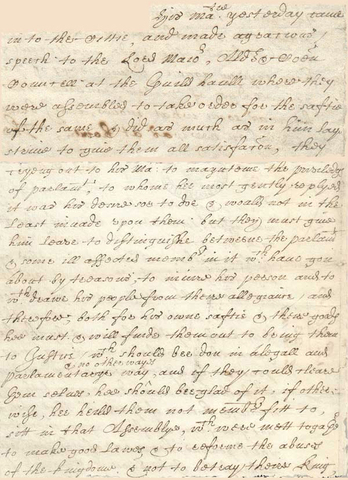 His Ma:tie yesterday came
in to the Cittie, and made a gratious
speech to the Lord Maior, Alder: & Coen
Councell at the Guild haule where they
were assembled to take order for the saftie
of the same & did as much as in him lay
striue to giue them all satisfaction, they
cryeng out to his Ma: to maynteine the priuiledg
of parlamt: to whome hee most gently replyed
it was his desire so to doe & would not in the
least invade upon them: but they must giue
him leaue to distinguishe betweene the parlamt
& some ill affected membrs in it wch haue gon
about by treasons, to iniure his person and to
wthdrawe his people from there allegiance, and
therefore both for his owne saftie & there gode
hee must & will finde them out to bring them
to Justice wch should bee don in a legall and
parlamentarye way & no otherwaye, and if they could cleare
them selues, hee should bee glad of it, if other-
wise, hee heeld them not membrs fitt to
sitt in that Assembly, wch were mett togather
to make good lawes, & to reforme the abuses
of the kingdome & not to betray there King